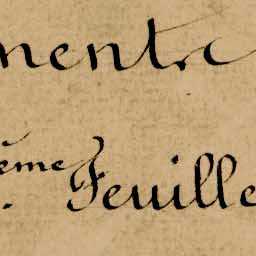 mentre
ème Feuille